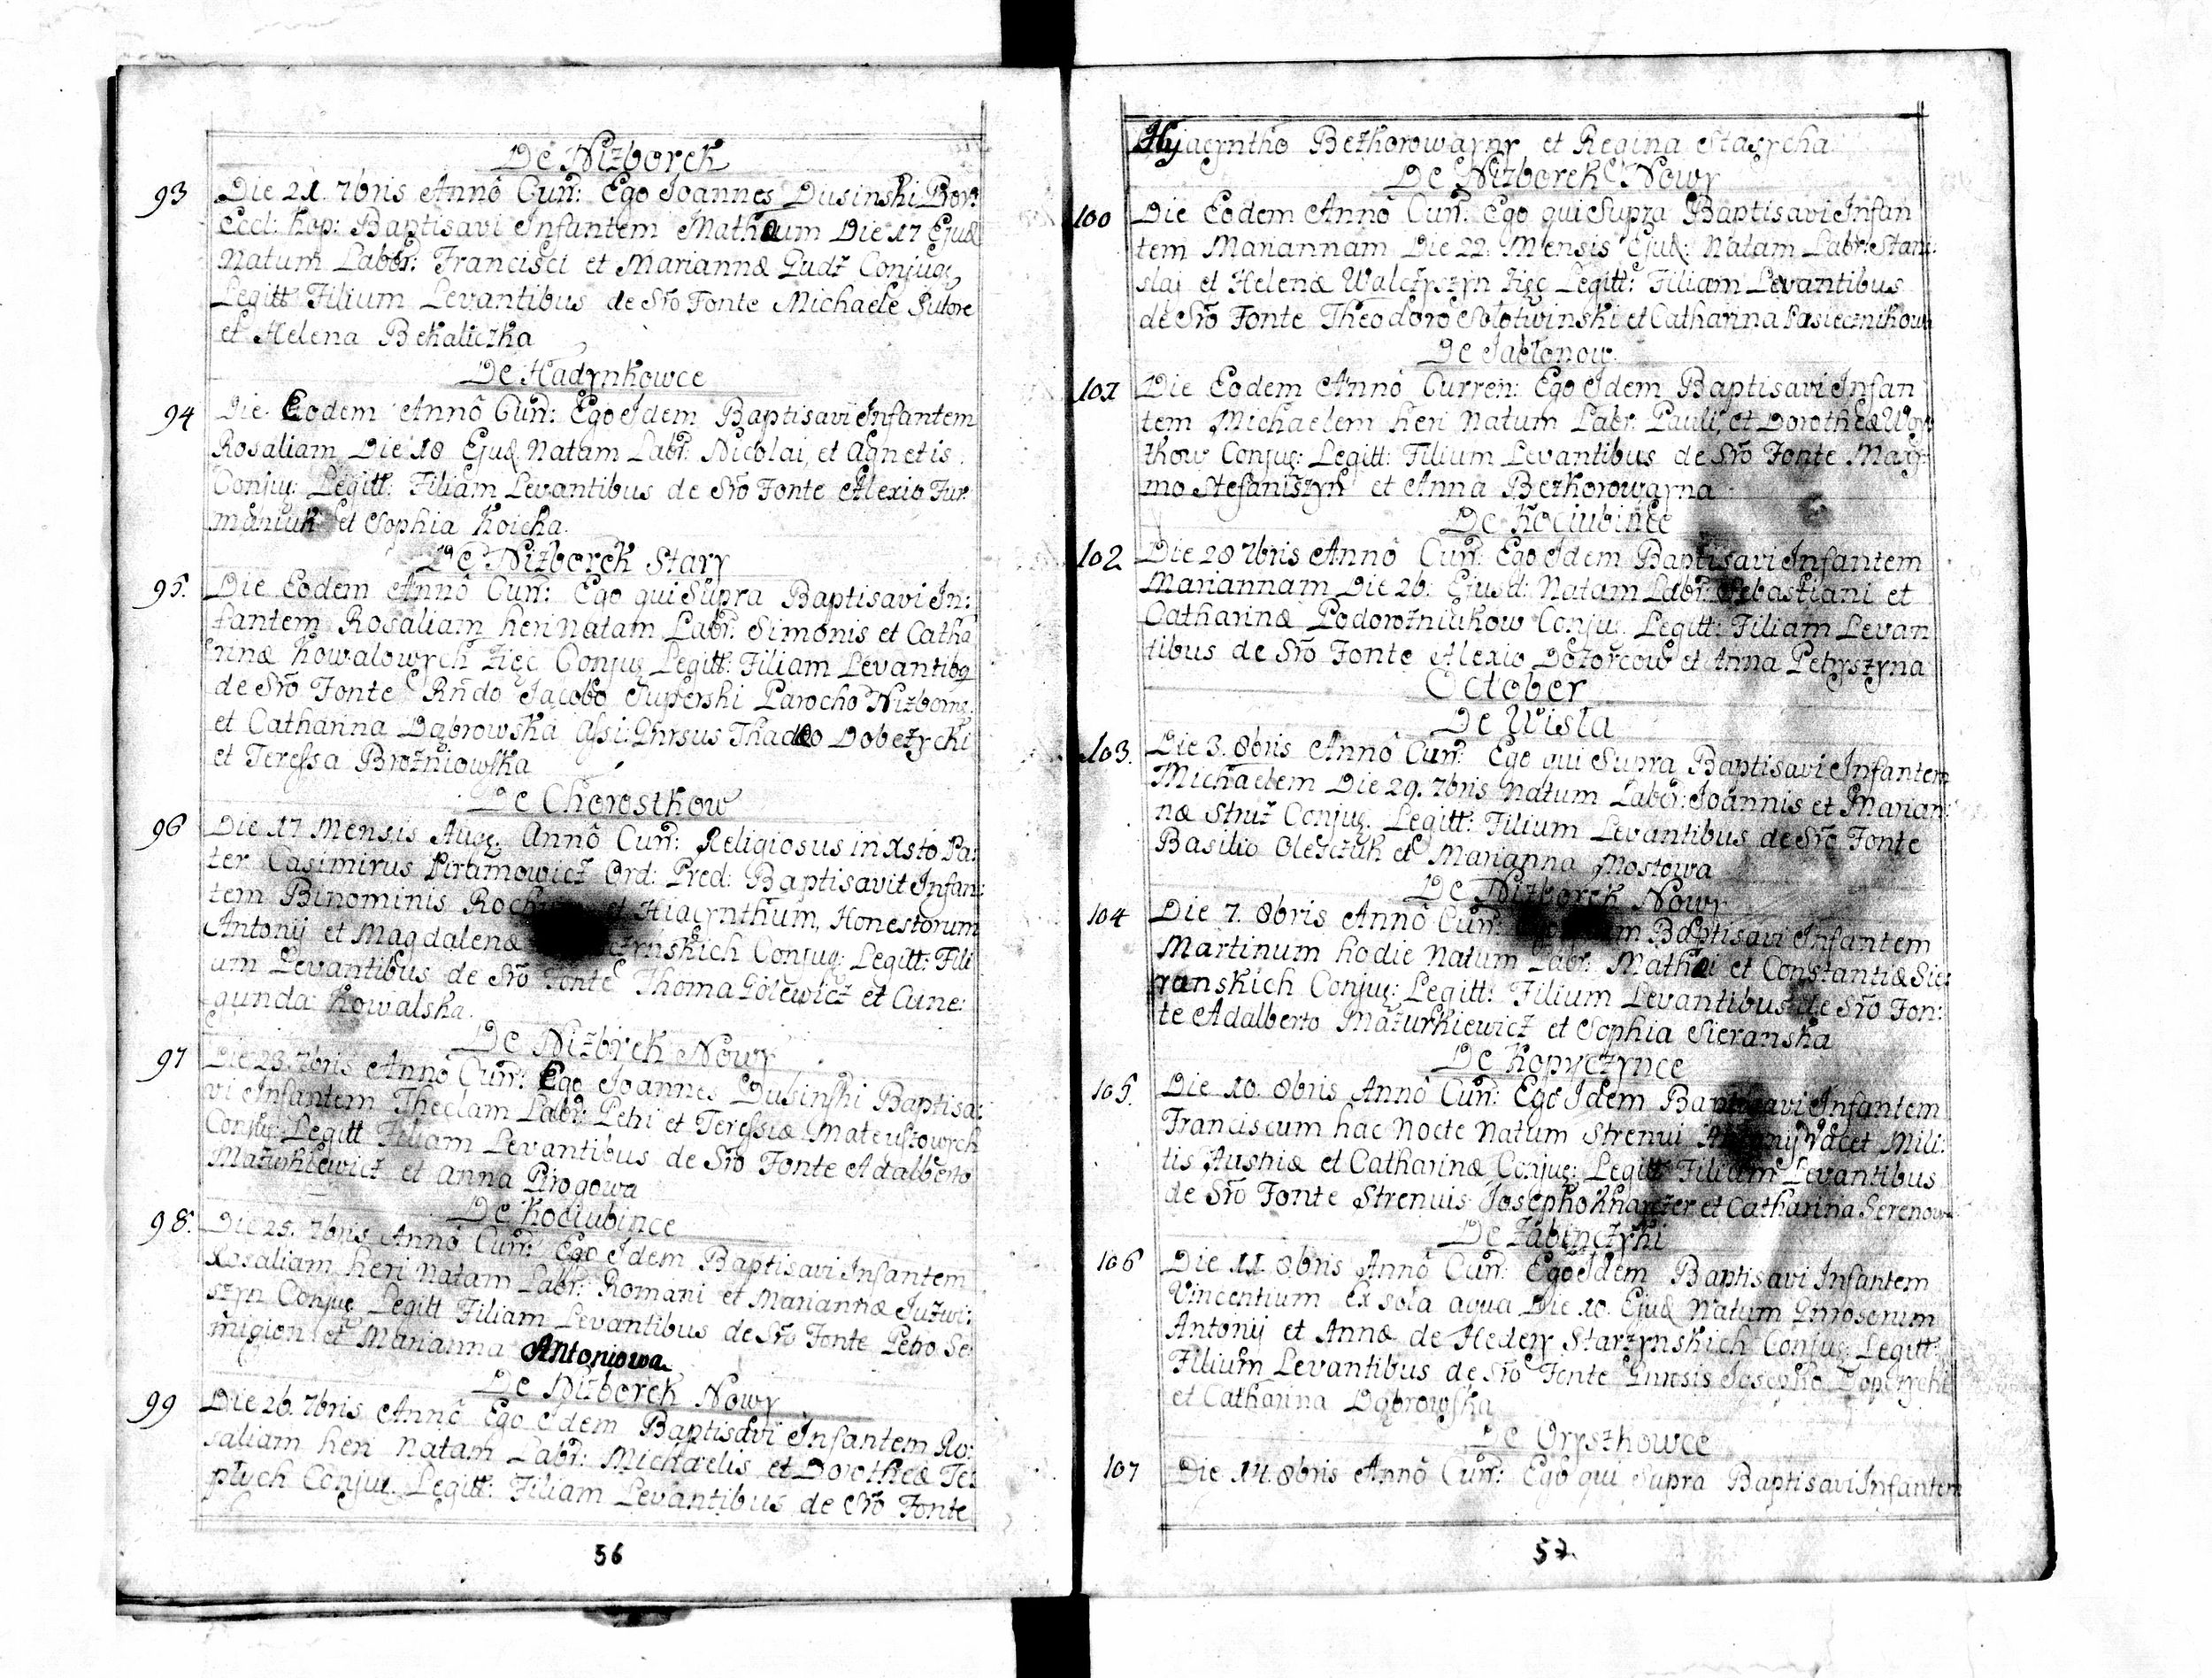 De Nizborek
93 Die 21. 7bris Annô Curr: Ego Joannes Dusinski Prov:
Eccl: Kop: Baptisavi Infantem Mathæum Die 17 Ejusd
Natum Labor: Francisci et Mariannæ Gudz Conjug:
Legitt Filium Levantibus de Sro Fonte Michaele Sutore
et Helena Bekaliczka
De Hadynkowce
94 Die Eodem Annô Curr: Ego Idem Baptisavi Infantem
Rosaliam Die 18 Ejusd Natam Labr: Nicolai, et Agnetis.
Conjug: Legitt: Filiam Levantibus de Sro Fonte Alexio Fur
maniuk et Sophia Koicka.
De Nizborek Stary
95. Die Eodem Annô Curr: Ego qui Supra Baptisavi In:
fantem Rosaliam heri natam Labr: Simonis et Catha
rinæ Kowalowych Zięć Conjug Legitt: Filiam Levantibq
de Sro Fonte Rndo Jacobo Superski Parocho Nizborne:
et Catharina Dąbrowska Assi: Gnrsus Thadeo Dobezycki
et Teressa Brozniowska
De Chorostkow
96 Die 17 Mensis Aug: Annô Curr: Religiosus in Xsto Pa:
ter Casimirus Piramowicz Ord: Pred: Baptisavit Infan:
tem Binominis et Hiacynthum, Honestorum
Antonij et Magdalenæ Conjug: Legitt: Fili
um Levantibus de Sro Fonte Thoma Golewicz et Cune:
gunda Kowalska.
De Nizbrek Nowy
97 Die 23. 7bris Annô Curr: Ego Joannes Dusinski Baptisa:
vi Infantem Theclam Labr: Petri et Teressiæ Mateuszowych
Conjug: Legitt Filiam Levantibus de Sro Fonte Adalberto
Mazurkiewicz et Anna Pirogowa
De Kociubince
98. Die 25. 7bris Annô Curr: Ego Idem Baptisavi Infantem
Rosaliam heri Natam Labr: Romani et Mariannæ Juzwi:
szyn Conjug Legitt Filiam Levantibus de Sro Fonte Petro Se:
migion et Marianna Antoniowa
De Nizborek Nowy
99 Die 26. 7bris Annô Ego Idem Baptisavi Infantem Ro:
saliam heri Natam Labr: Michaelis et Dorotheæ Te:
płych Conjug. Legitt: Filiam Levantibus de Sro Fonte
56
Hyjacyntho Bezkorowayny et Regina Stasycha
De Nizborek Nowy
100 Die Eodem Annô Curr: Ego qui Supra Baptisavi Infan
tem Mariannam Die 22. Mensis Ejusd: Natam Labr: Stani:
slai et Helenæ Walczyszyn Zięć Legitt: Filiam Levantibus
de Sro Fonte Theodoro Solotwinski et Catharina Pasiecznikowa
De Jabłonow.
101 Die Eodem Annô Curren: Ego Idem Baptisavi Infan
tem Michaelem heri Natum Labr. Pauli, et Dorotheæ Woy
tkow Conjug: Legitt: Filium Levantibus de Sro Fonte Maxi
mo Stefaniszyn et Anna Bezkorowayna
De Kociubince
102 Die 28 7bris Annô Curr: Ego Idem Baptisavi Infantem
Mariannam Die 26: Ejusd: Natam Labr: Sebastiani et
Catharinæ Podorożniukow Conjug. Legitt: Filiam Levan
tibus de Sro Fonte Alexio Dozorcow et Anna Petryszyna
October
De Wisla
103. Die 3. 8bris Annô Curr: Ego qui Supra Baptisavi Infantem
Michaelem Die 29. 7bris Natum Labor: Joannis et Marian:
næ Struz Conjug. Legitt: Filium Levantibus de Sro Fonte
Basilio Oleszczuk et Marianna Mostowa
De Nizborek Nowy
104 Die 7. 8bris Annô Curr: Baptisavi Infantem
Martinum hodie Natum Labr: Mathæi et Constantiæ Sie:
ranskich Conjug: Legitt: Filium Levantibus de Sro Fon:
te Adalberto Mazurkiewicz et Sophia Sieranska
De Kopyczynce
105. Die 10. 8bris Annô Curr: Ego Idem Baptisavi Infantem
Franciscum hac Nocte Natum Strenui Antonij Vacet Mili:
tis Austriæ et Catharinæ Conjug: Legitt Filium Levantibus
de Sro Fonte Strenuis Josepho et Catharina Serenowa
De Zabinczyki
106 Die 11. 8bris Annô Curr: Ego Idem Baptisavi Infantem
Vincentium Ex sola aqua Die 10. Ejusd Natum Gnrosorum
Antonij et Annæ de Hedery Starzynskich Conjug: Legitt:
Filium Levantibus de Sro Fonte Gnrosis Josepho
et Catharina Dąbrowska
De Oryszkowce
107 Die 14. 8bris Annô Curr: Ego qui Supra Baptisavi Infantem
57.